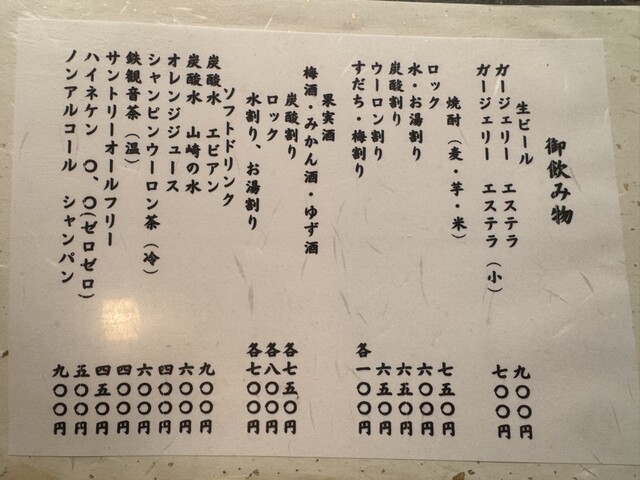 御飲み物
生ビール
ガージェリー エステラ 九〇〇円
ガージェリー エステラ(小) 七〇〇円
焼酎(麦・芋・米)
ロック 七五〇円
水・お湯割り 六〇〇円
炭酸割り 六五〇円
ウーロン割り 六五〇円
すだち・梅割り 各一〇〇円
果実酒
梅酒・みかん酒・ゆず酒
炭酸割り 各七五〇円
ロック 各八〇〇円
水割り、お湯割り 各七〇〇円
ソフトドリンク
炭酸水 エビアン 九〇〇円
炭酸水 山崎の水 六〇〇円
オレンジジュース 四〇〇円
シャンピンウーロン茶(冷) 六〇〇円
鉄観音茶(温) 四〇〇円
サントリーオールフリー 四五〇円
ハイネケン 〇、〇(ゼロゼロ) 五〇〇円
ノンアルコール シャンパン 九〇〇円